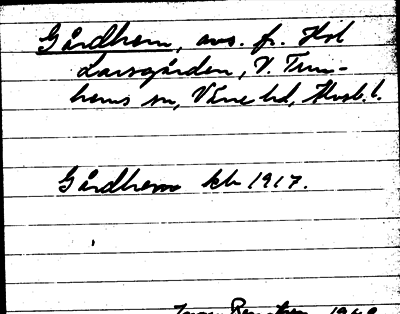 Gårdhem, avs. fr. Hol
Larsgården, V. Tun-
hems sn, Väne hd, Älvsb. l.
Gårdhem kb 1917.
1949